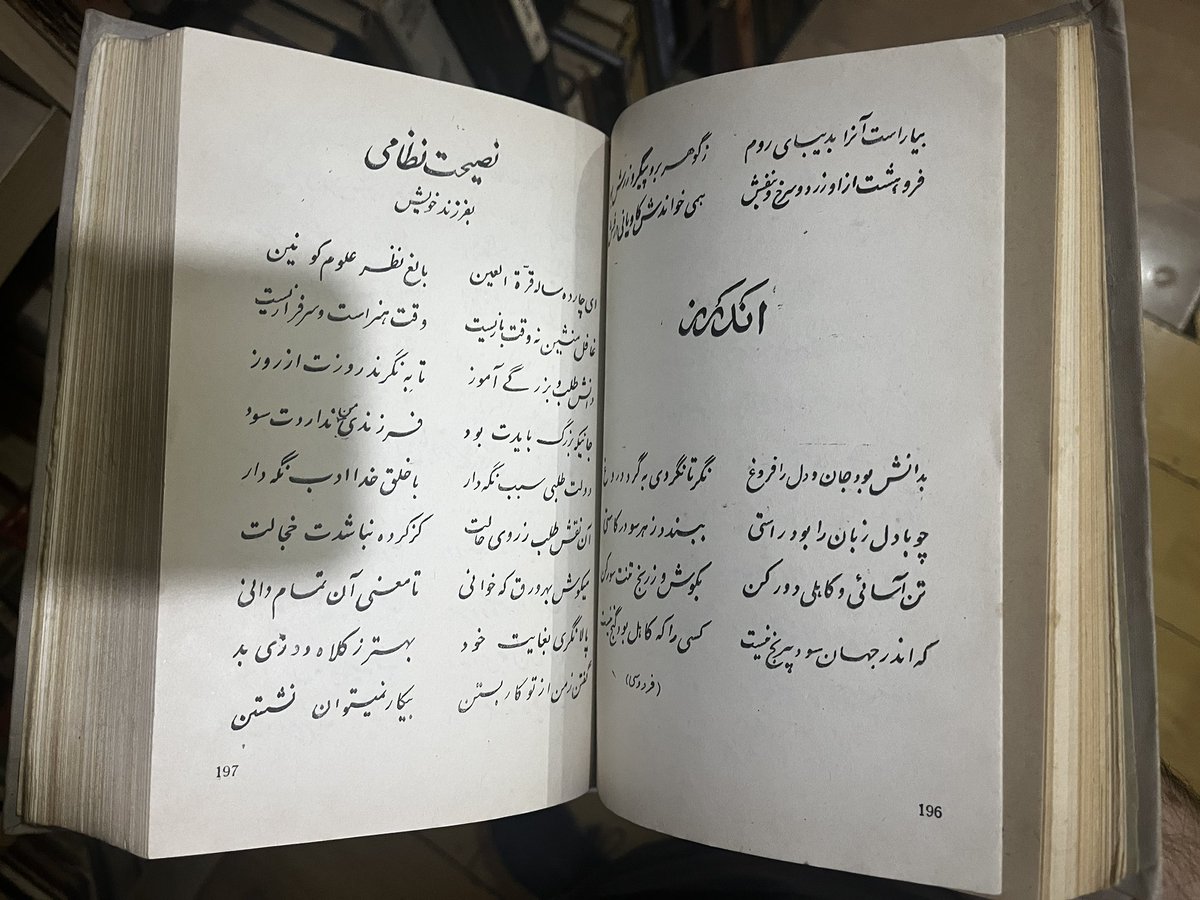 بیاراست آنرا بدیبای روم زگوهر برو پیکر
فروهشت ازاو زرد و سرخ و بنفش همی خواندش کاویانی
بدانش بود جان و دل را فروغ نگر تا نگردی به گرد دروغ
چو با دل زبان را بود راستی ببندد ز هر سو در کاستی
تن آسائی و کاهلی دور کن بکوش و زرنج تنت سور کن
که اندر جهان سود بیرنج نیست کسی را که کاهل بود گنج نیست
(فردوسی)
196
نصیحت نظامی
بفرزند خویش
ای چارده ساله قرّة العین بالغ نظر علوم کونین
غافل منشین نه وقت بازیست وقت هنر است و سرفرازیست
دانش طلب و بزرگے آموز تا به نگرند روزت از روز
جائیکه بزرگ بایدت بود فرزندی من نداردت سود
دولت طلبی سبب نگه دار با خلق خدا ادب نگه دار
آن نقش طلب زروی حالت کز کرده نباشدت خجالت
میکوش بهر ورق که خوانی تا معنی آن تمام دانی
پالانگری بغایت خود بهتر ز کلاه دوزی بد
گفتن زمن از تو کار بستن بیکار نمیتوان نشستن
197